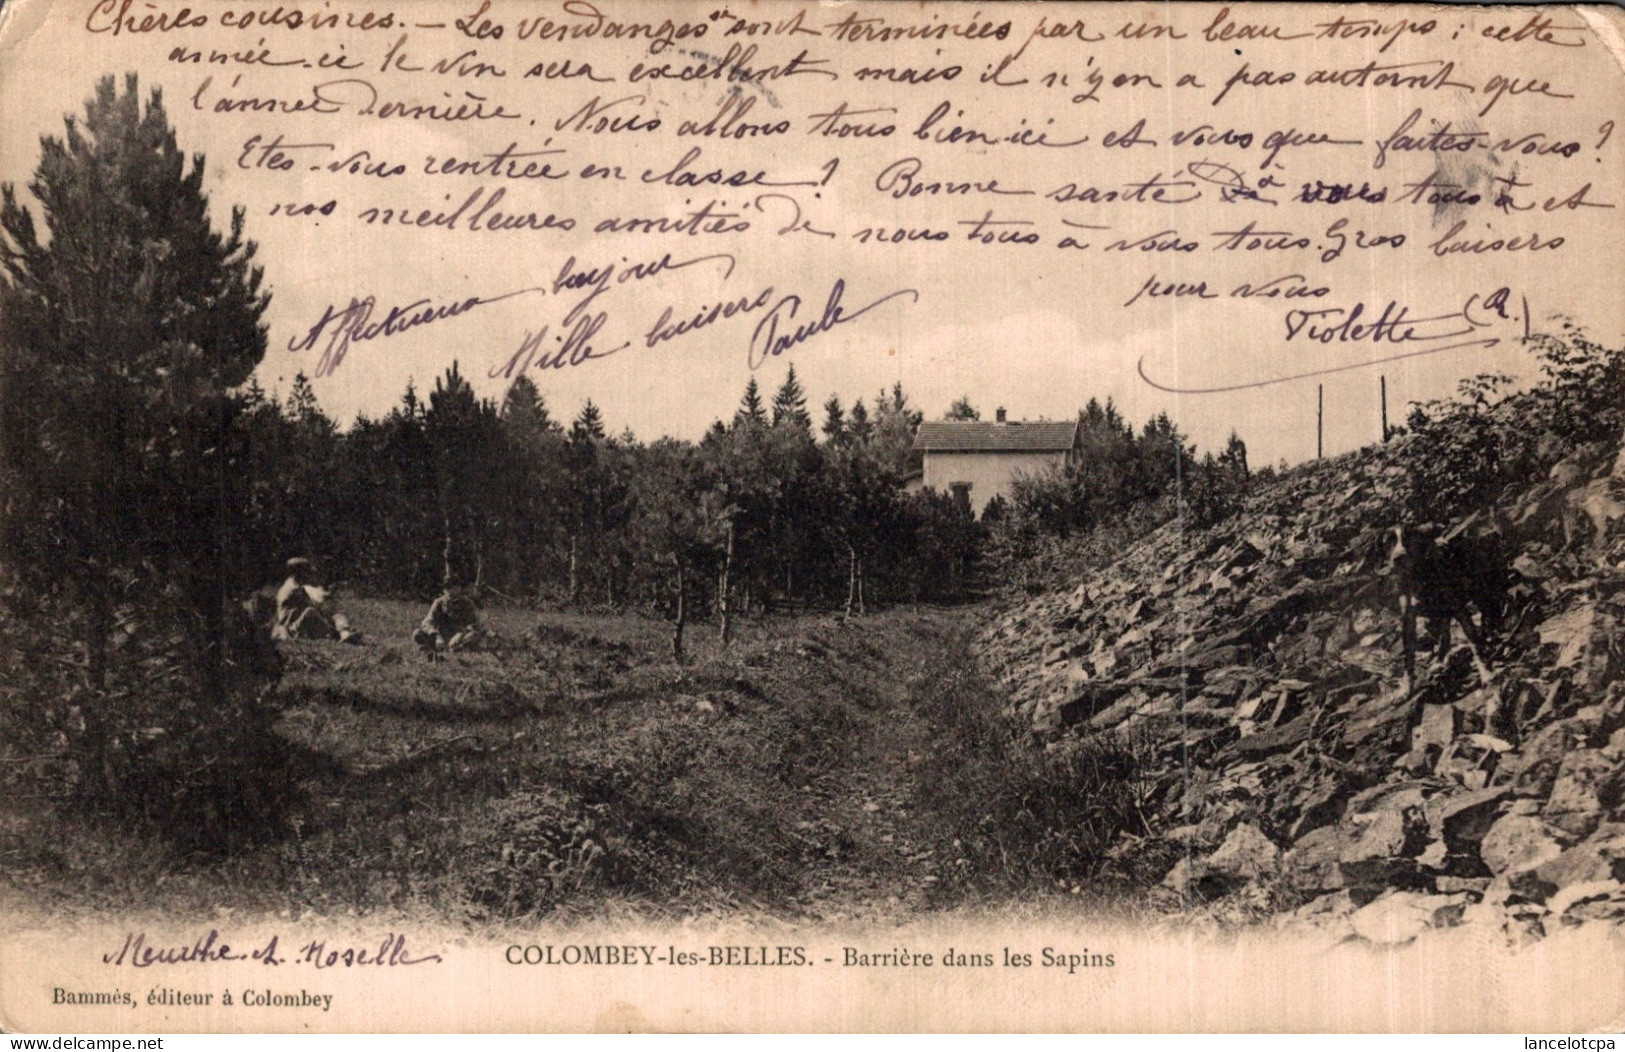 Chères cousines. - Les vendanges sont terminées par un beau temps ; cette
année-ci le vin sera excellent mais il n'y en a pas autant que
l'année dernière. Nous allons tous bien ici et vous que faites-vous ?
Etes-vous rentrée en classe ? Bonne santé à vous tous et
nos meilleures amitiés de nous tous à vous tous. Gros baisers
pour vous
Violette (R.)
Affectueux bonjour
Mille baisers
Paule
Meurthe-et-Moselle.
COLOMBEY-les-BELLES. - Barrière dans les Sapins
Bammès, éditeur à Colombey
delcampe.net
lancelotcpa